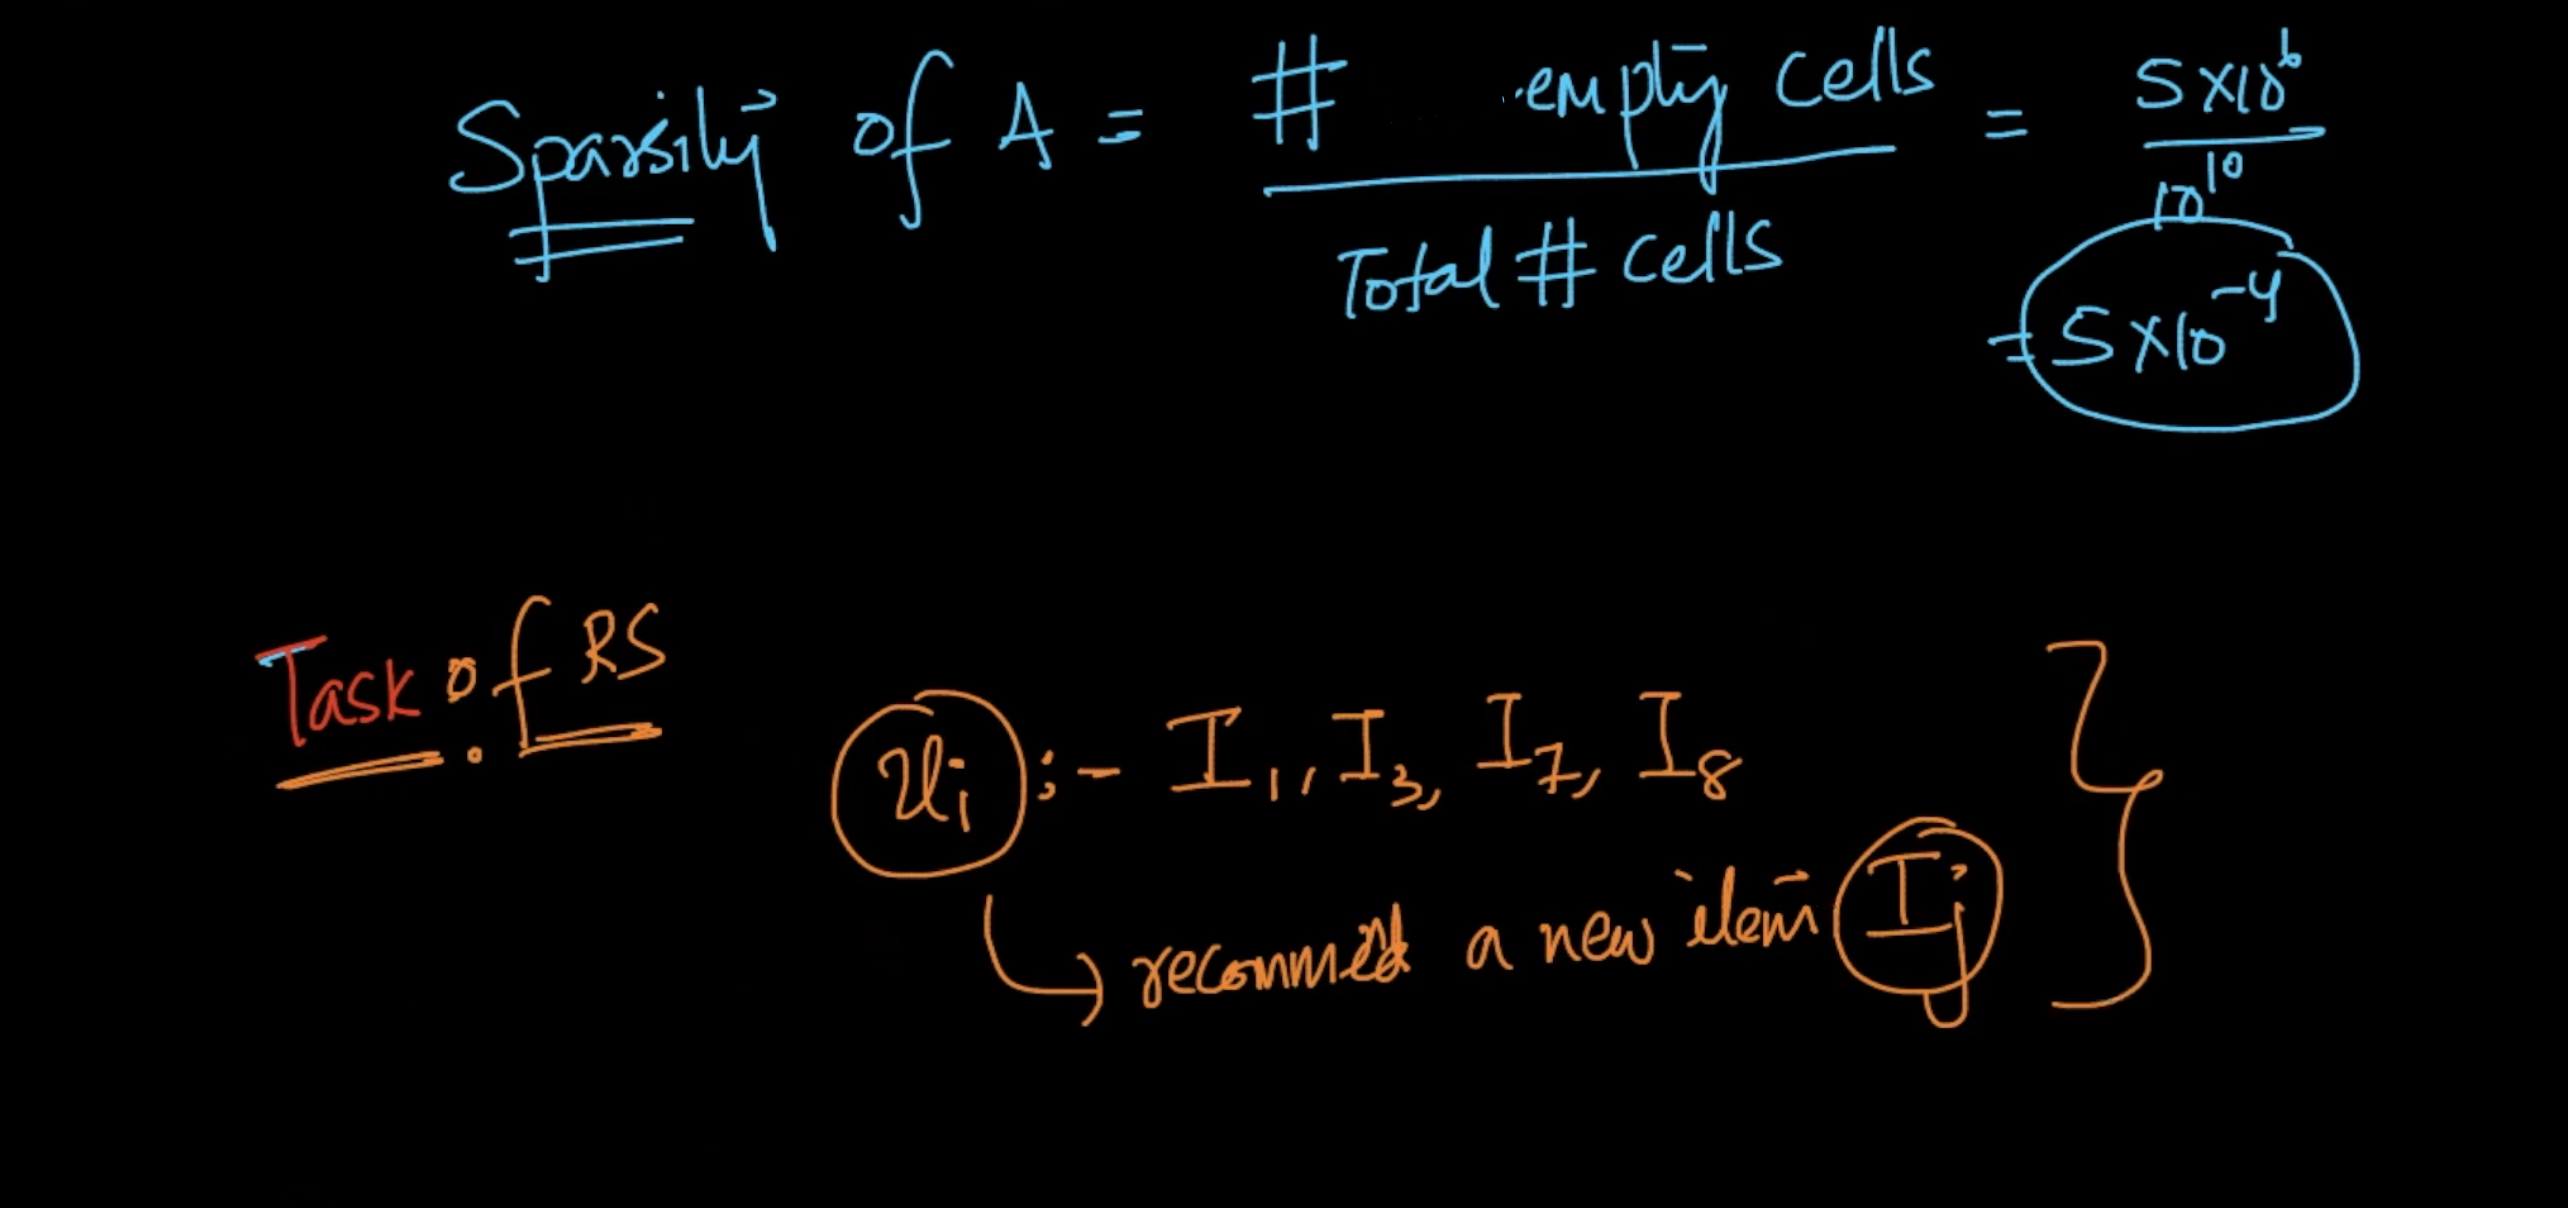 Sparsity of A = # empty cells / Total # cells = 5×10^6 / 10^10
= 5×10^-4
Task of RS
Ui :- I1, I3, I7, I8
→ recommend a new item Ij